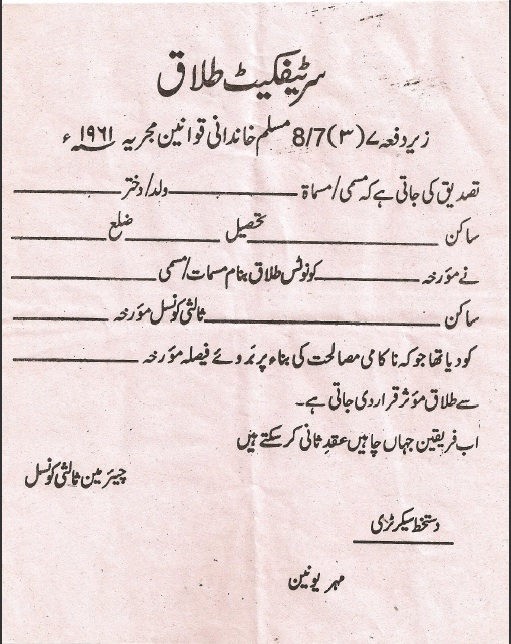 سرٹیفکیٹ طلاق
زیر دفعہ ۷(۳)8/7 مسلم خاندانی قوانین مجریہ ۱۹۶۱ء
تصدیق کی جاتی ہے کہ مسمی/مسماۃ ولد/دختر
ساکن تحصیل ضلع
نے مؤرخہ کو نوٹس طلاق بنام مسمات/مسمی
ساکن ثالثی کونسل مؤرخہ
کو دیا تھا جو کہ ناکامی مصالحت کی بناء پر بروئے فیصلہ مؤرخہ
سے طلاق مؤثر قرار دی جاتی ہے۔
اب فریقین جہاں چاہیں عقد ثانی کر سکتے ہیں
چیئرمین ثالثی کونسل
دستخط سیکرٹری
مہر یونین